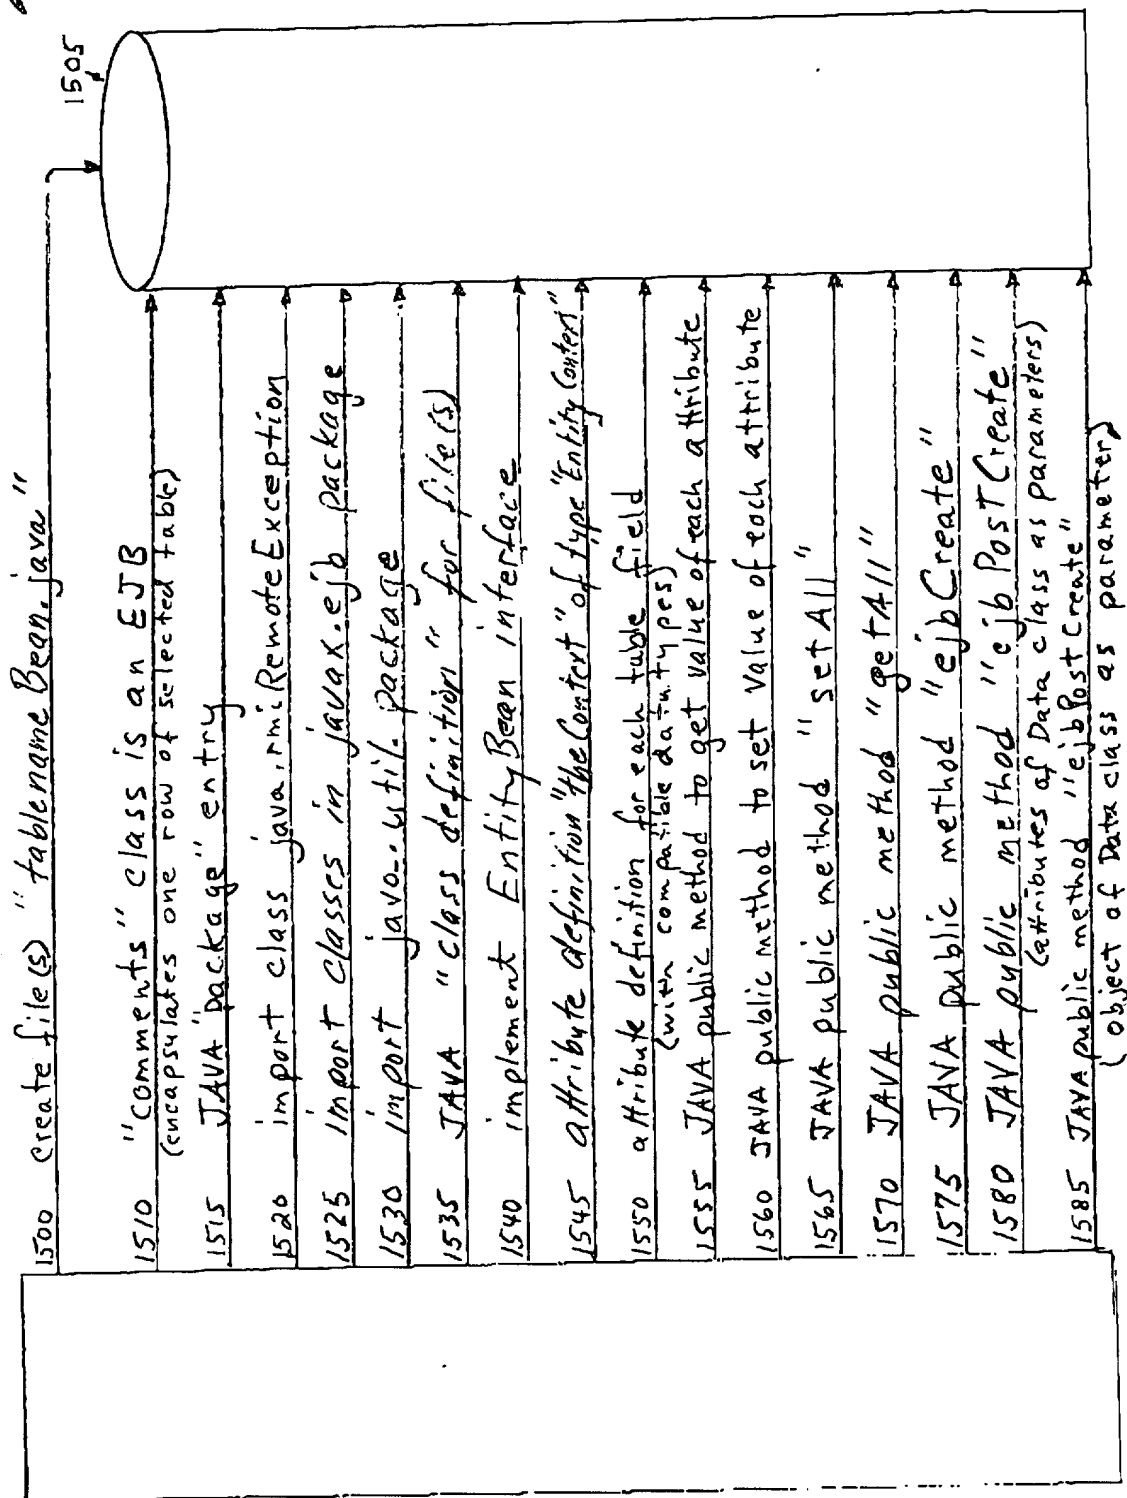 1500 create file(s) "tablename Bean.java"
1505
1510 "comments" class is an EJB
(encapsulates one row of selected table)
1515 JAVA "package" entry
1520 import class java.rmi.RemoteException
1525 import classes in javax.ejb package
1530 import java.util. package
1535 JAVA "class definition" for file(s)
1540 implement EntityBean interface
1545 attribute definition "theContext" of type "Entity Context"
1550 attribute definition for each table field
(with compatible data types)
1555 JAVA public method to get value of each attribute
1560 JAVA public method to set value of each attribute
1565 JAVA public method "setAll"
1570 JAVA public method "getAll"
1575 JAVA public method "ejbCreate"
1580 JAVA public method "ejbPostCreate"
(attributes of Data class as parameters)
1585 JAVA public method "ejbPostCreate"
(object of Data class as parameter)